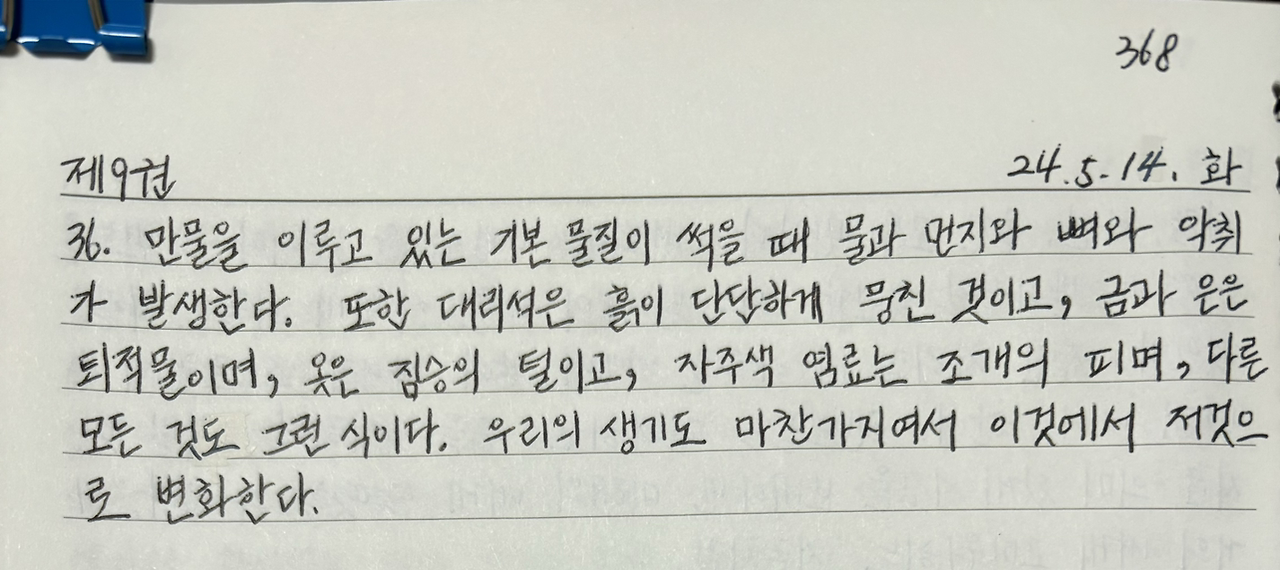 368
제9권 24.5.14. 화
36. 만물을 이루고 있는 기본 물질이 썩을 때 물과 먼지와 뼈와 악취
가 발생한다. 또한 대리석은 흙이 단단하게 뭉친 것이고, 금과 은은
퇴적물이며, 옷은 짐승의 털이고, 자주색 염료는 조개의 피며, 다른
모든 것도 그런 식이다. 우리의 생기도 마찬가지여서 이것에서 저것으
로 변화한다.